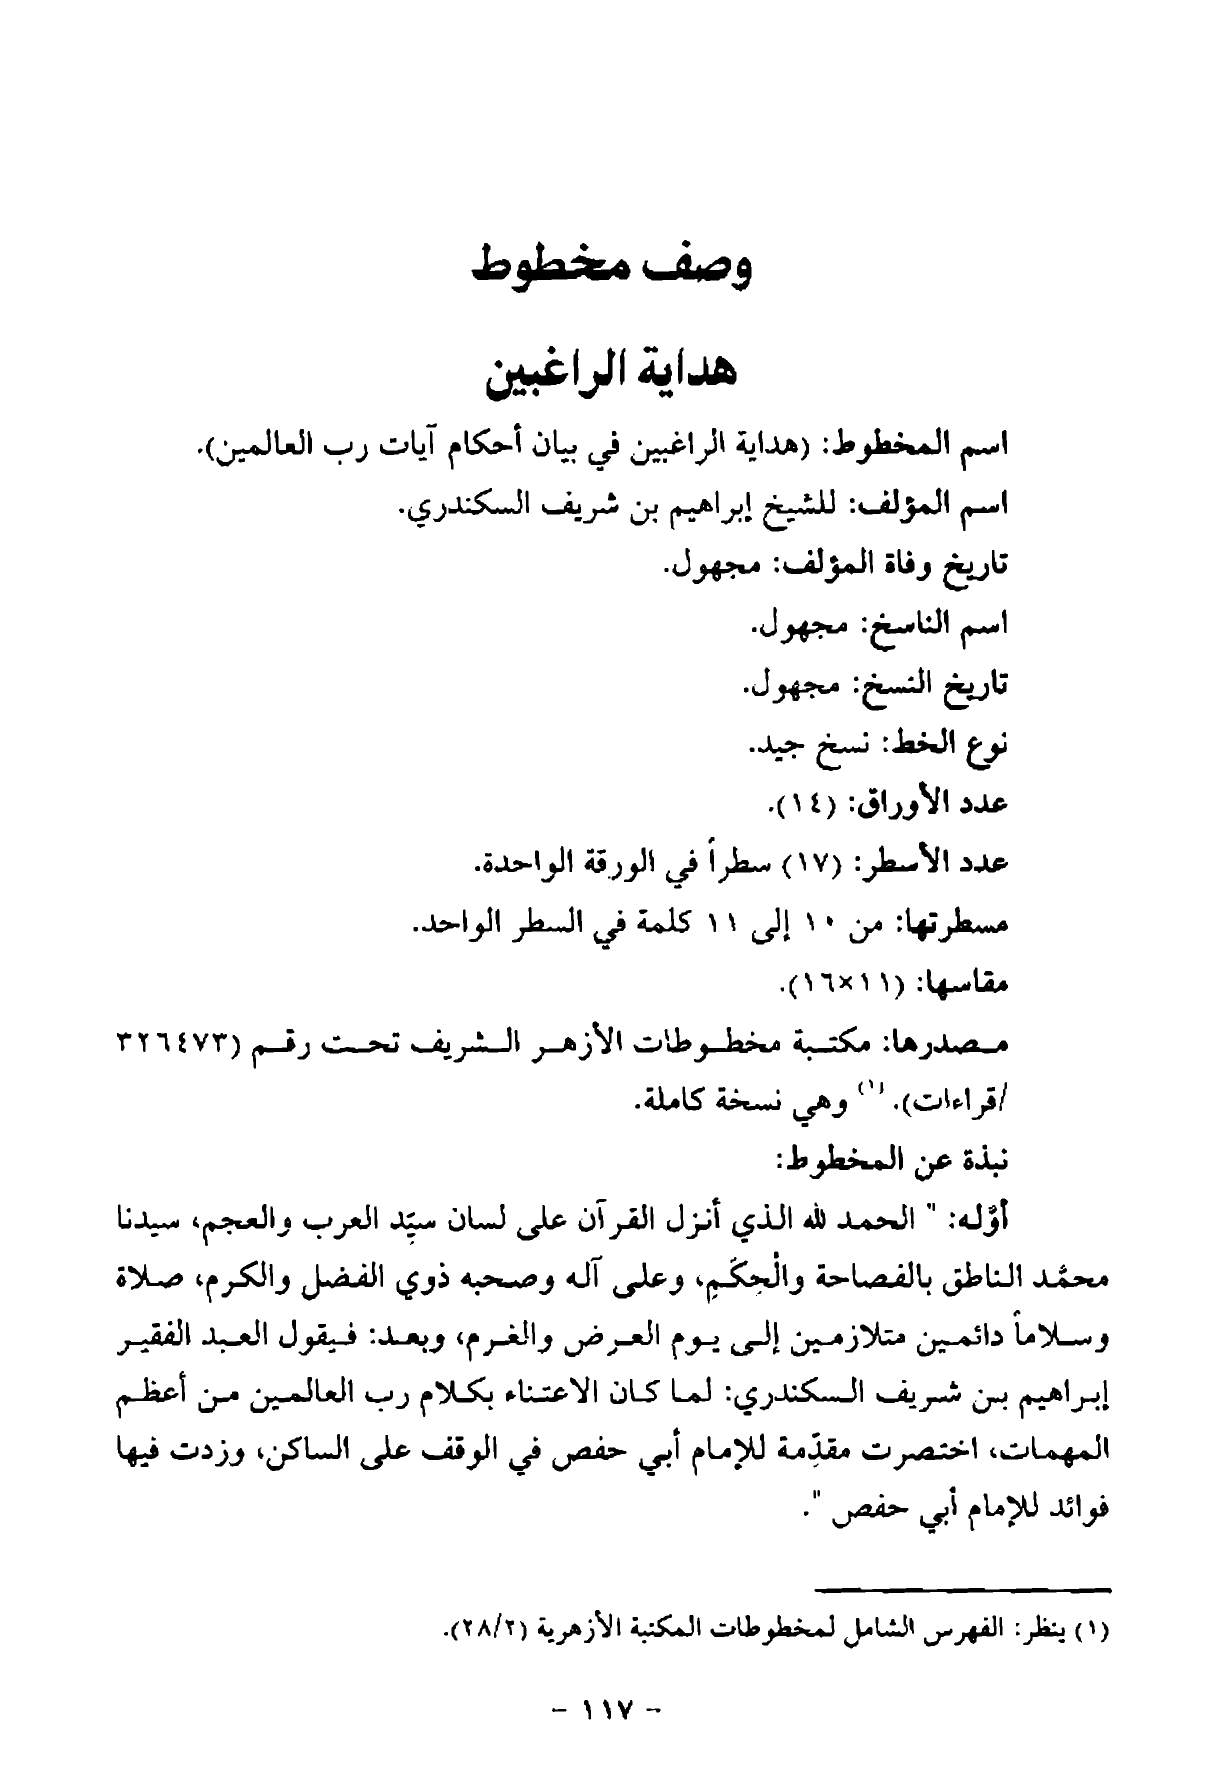 وصف مخطوط
هداية الراغبين
اسم المخطوط: (هداية الراغبين في بيان أحكام آيات رب العالمين).
اسم المؤلف: للشيخ إبراهيم بن شريف السكندري.
تاريخ وفاة المؤلف: مجهول.
اسم الناسخ: مجهول.
تاريخ النسخ: مجهول.
نوع الخط: نسخ جيد.
عدد الأوراق: (١٤).
عدد الأسطر: (١٧) سطراً في الورقة الواحدة.
مسطرتها: من ١٠ إلى ١١ كلمة في السطر الواحد.
مقاسها: (١١×١٦).
مصدرها: مكتبة مخطوطات الأزهر الشريف تحت رقم (٣٢٦٤٧٣
/قراءات). (١) وهي نسخة كاملة.
نبذة عن المخطوط:
أوَّله: " الحمد لله الذي أنزل القرآن على لسان سيِّد العرب والعجم، سيدنا
محمَّد الناطق بالفصاحة والْحِكَمِ، وعلى آله وصحبه ذوي الفضل والكرم، صلاة
وسلاماً دائمين متلازمين إلى يوم العرض والغرم، وبعد: فيقول العبد الفقير
إبراهيم بن شريف السكندري: لما كان الاعتناء بكلام رب العالمين من أعظم
المهمات، اختصرت مقدِّمة للإمام أبي حفص في الوقف على الساكن، وزدت فيها
فوائد للإمام أبي حفص ".
(١) ينظر: الفهرس الشامل لمخطوطات المكتبة الأزهرية (٢٨/٢).
- ١١٧ -